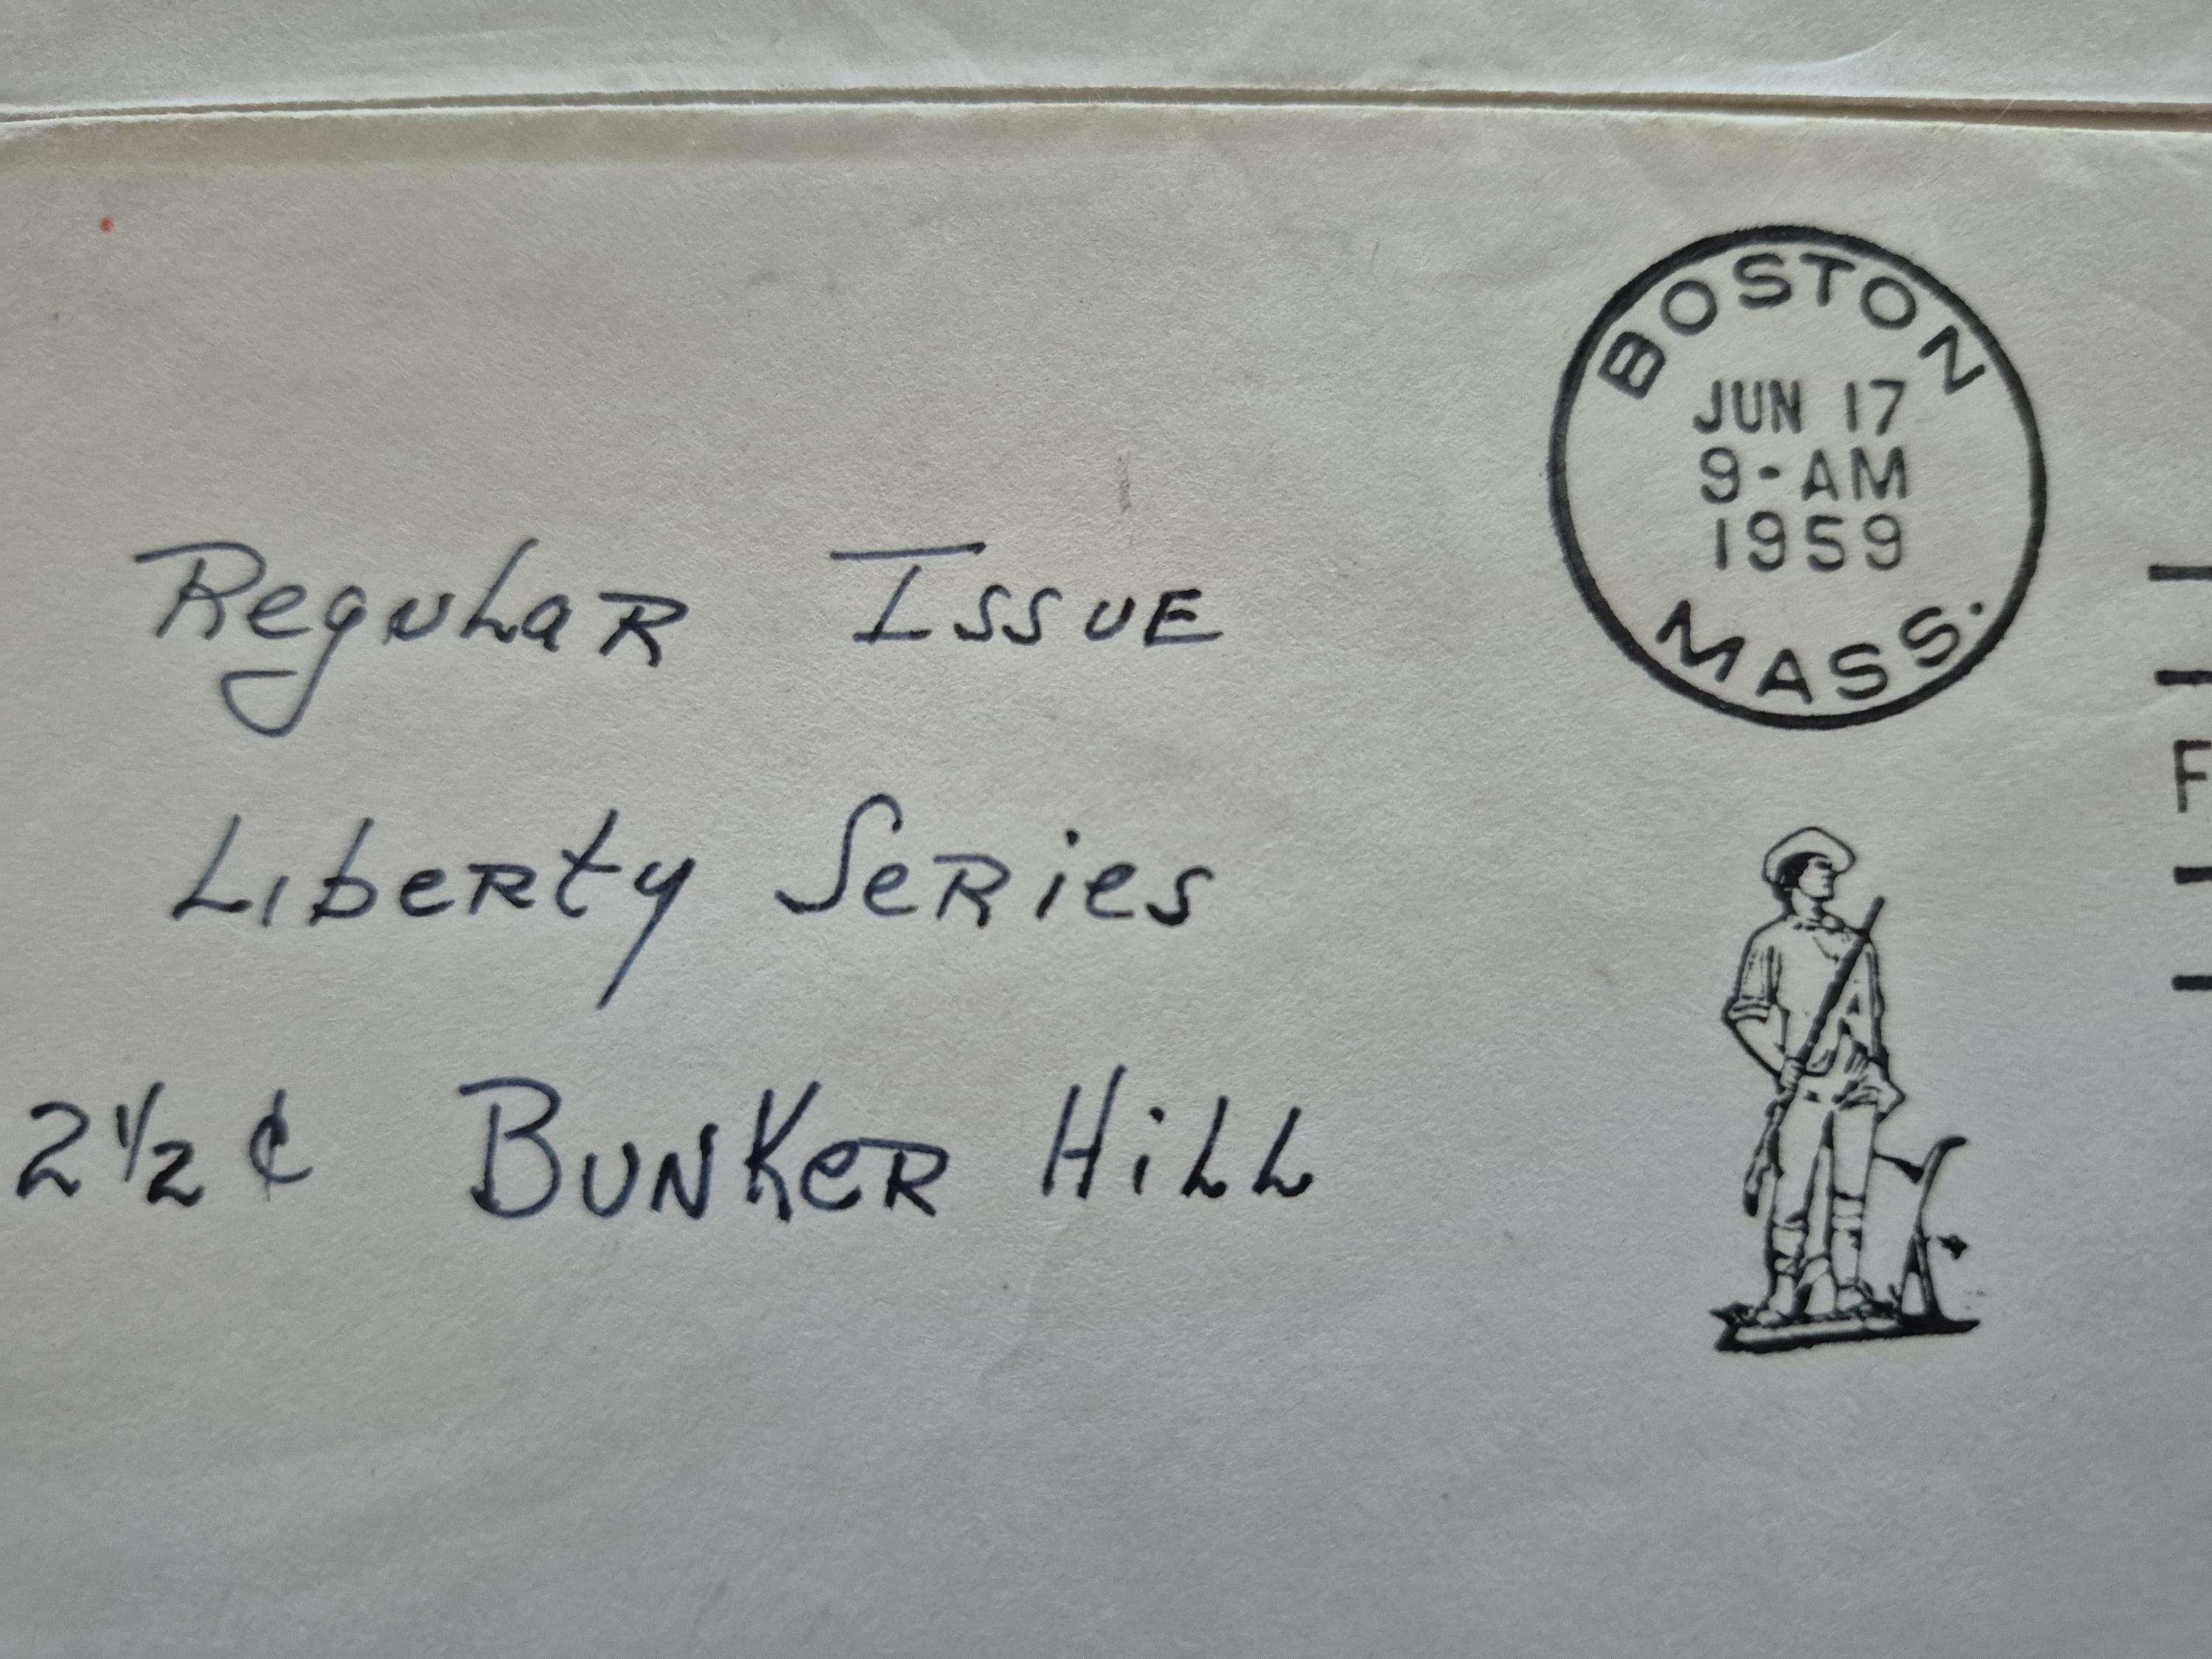 BOSTON
JUN 17
9-AM
1959
MASS.
Regular Issue
Liberty Series
2½ ¢ Bunker Hill
F